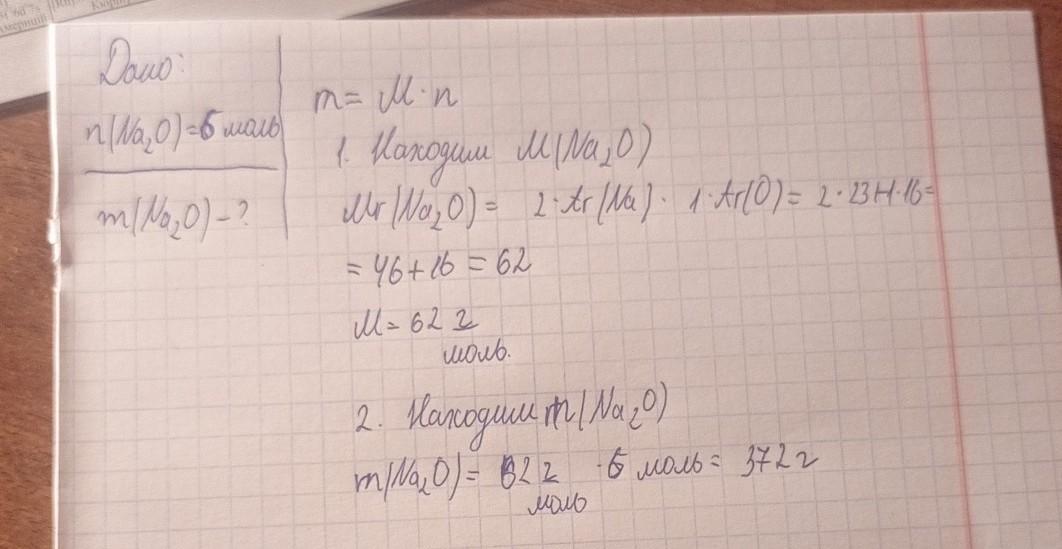 Дано:
n(Na₂O)=6 моль
m(Na₂O)-?
m= M·n
1. Находим M(Na₂O)
Mr(Na₂O)= 2·Ar(Na)· 1·Ar(O)= 2·23+1·16=
= 46+16=62
M=62 г
моль.
2. Находим m(Na₂O)
m(Na₂O)= 62 г ·6 моль= 372 г
моль